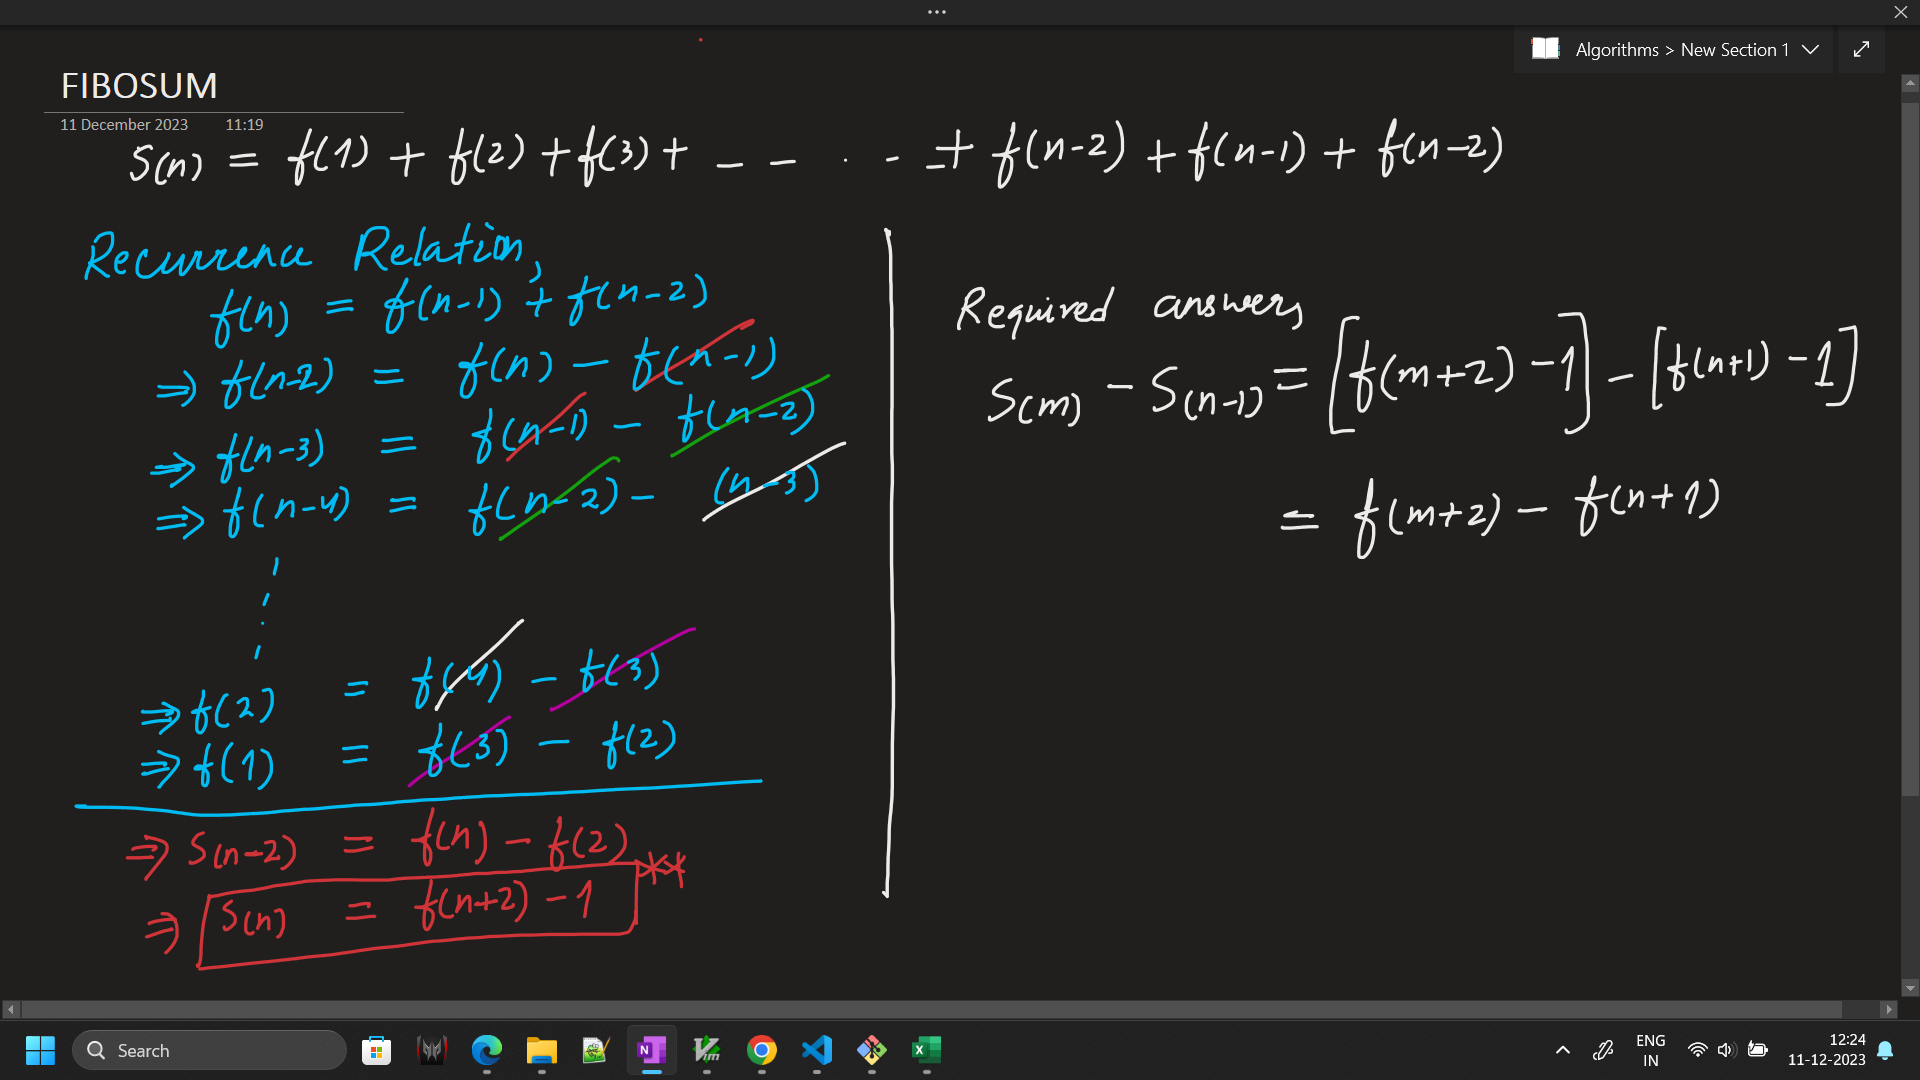 Algorithms > New Section 1
FIBOSUM
11 December 2023 11:19
S(n) = f(1) + f(2) + f(3) + - - . - - + f(n-2) + f(n-1) + f(n-2)
Recurrence Relation,
f(n) = f(n-1) + f(n-2)
⇒ f(n-2) = f(n) - f(n-1)
⇒ f(n-3) = f(n-1) - f(n-2)
⇒ f(n-4) = f(n-2) - (n-3)
⇒ f(2) = f(4) - f(3)
⇒ f(1) = f(3) - f(2)
⇒ S(n-2) = f(n) - f(2)
⇒ S(n) = f(n+2) - 1 **
Required answers
S(m) - S(n-1) = [f(m+2) - 1] - [f(n+1) - 1]
= f(m+2) - f(n+1)
Search
ENG
IN
12:24
11-12-2023